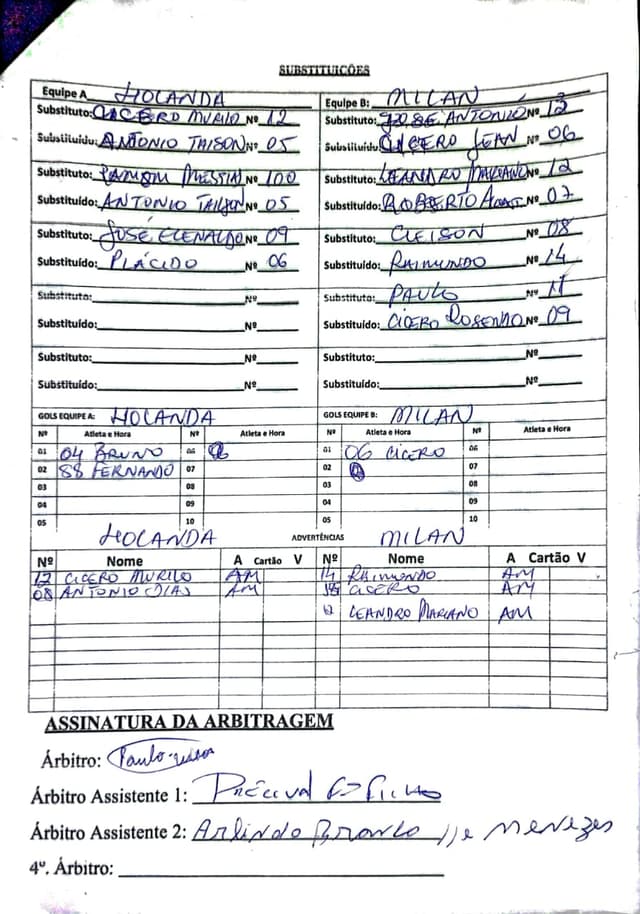 SUBSTITUIÇÕES
Equipe A HOLANDA
Substituto: CICERO MURILO Nº 12
Substituído: ANTONIO TAISON Nº 05
Substituto: MESSIAS Nº 100
Substituído: ANTONIO TAISON Nº 05
Substituto: JOSÉ ELENALDO Nº 09
Substituído: PLÁCIDO Nº 06
Substituto: Nº
Substituído: Nº
Substituto: Nº
Substituído: Nº
Equipe B: MILAN
Substituto: JOSE ANTONIO Nº 13
Substituído: CICERO JEAN Nº 06
Substituto: LEANDRO MARIANO Nº 12
Substituído: ROBERTO Nº 07
Substituto: CLEISON Nº 08
Substituído: RAIMUNDO Nº 14
Substituto: PAULO Nº 11
Substituído: CICERO ROSENDO Nº 09
Substituto: Nº
Substituído: Nº
GOLS EQUIPE A: HOLANDA
Nº Atleta e Hora Nº Atleta e Hora
01 04 BRUNO 06
02 88 FERNANDO 07
03 08
04 09
05 10
GOLS EQUIPE B: MILAN
Nº Atleta e Hora Nº Atleta e Hora
01 06 CICERO 06
02 07
03 08
04 09
05 10
HOLANDA ADVERTÊNCIAS MILAN
Nº Nome A Cartão V Nº Nome A Cartão V
12 CICERO MURILO AM 14 RAIMUNDO AM
08 ANTONIO DIAS AM CICERO AM
12 LEANDRO MARIANO AM
ASSINATURA DA ARBITRAGEM
Árbitro: Paulo
Árbitro Assistente 1:
Árbitro Assistente 2: Arlindo Branco de Menezes
4º. Árbitro: